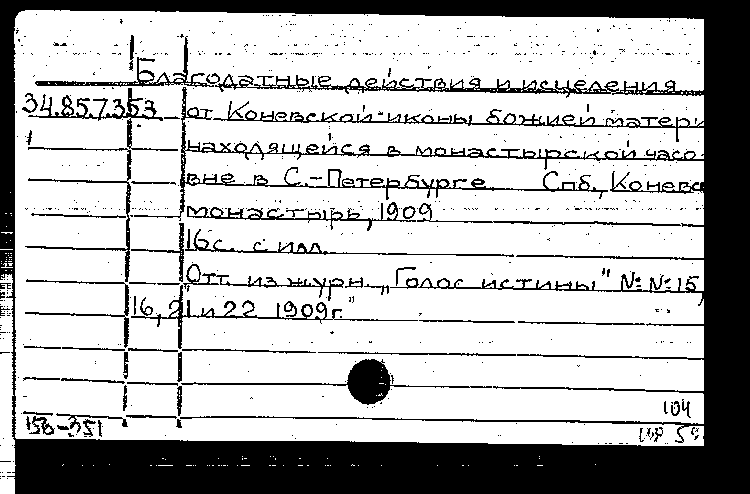 Благодатные действия и исцеления
34.85.7.353 от Коневской иконы божией матери
находящейся в монастырской часо-
вне в С.-Петербурге. Спб., Коневс
монастырь, 1909
16с. с илл.
Отт. из журн. „Голос истины" №№ 15,
16, 21 и 22 1909г."
104
156-351